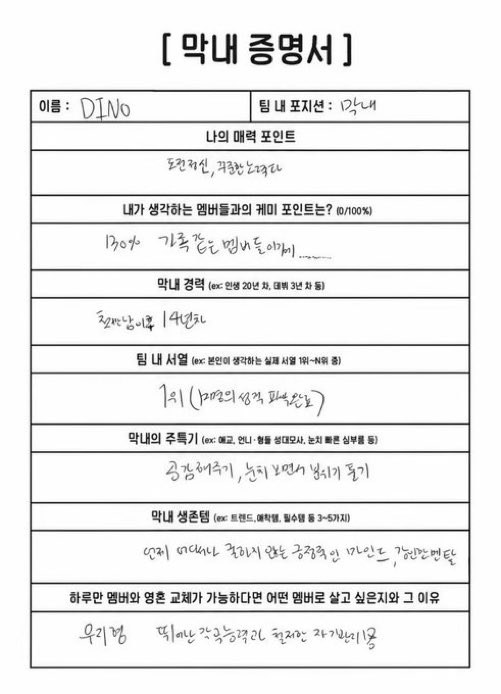 [ 막내 증명서 ]
이름 : DINO
팀 내 포지션 : 막내
나의 매력 포인트
도전정신, 꾸준한 노력파
내가 생각하는 멤버들과의 케미 포인트는? (0/100%)
130% 가족 같은 멤버들이기에......
막내 경력 (ex: 인생 20년 차, 데뷔 3년 차 등)
첫만남 이후 14년차
팀 내 서열 (ex: 본인이 생각하는 실제 서열 1위~N위 중)
1위 (12명의 성격 파악완료)
막내의 주특기 (ex: 애교, 언니·형들 성대모사, 눈치 빠른 심부름 등)
공감해주기, 눈치 보면서 분위기 풀기
막내 생존템 (ex: 트렌드,애착템, 필수템 등 3~5가지)
언제 어디서나 굴하지 않는 긍정적인 마인드, 강인한 멘탈
하루만 멤버와 영혼 교체가 가능하다면 어떤 멤버로 살고 싶은지와 그 이유
우지형 뛰어난 작곡능력과 철저한 자기관리